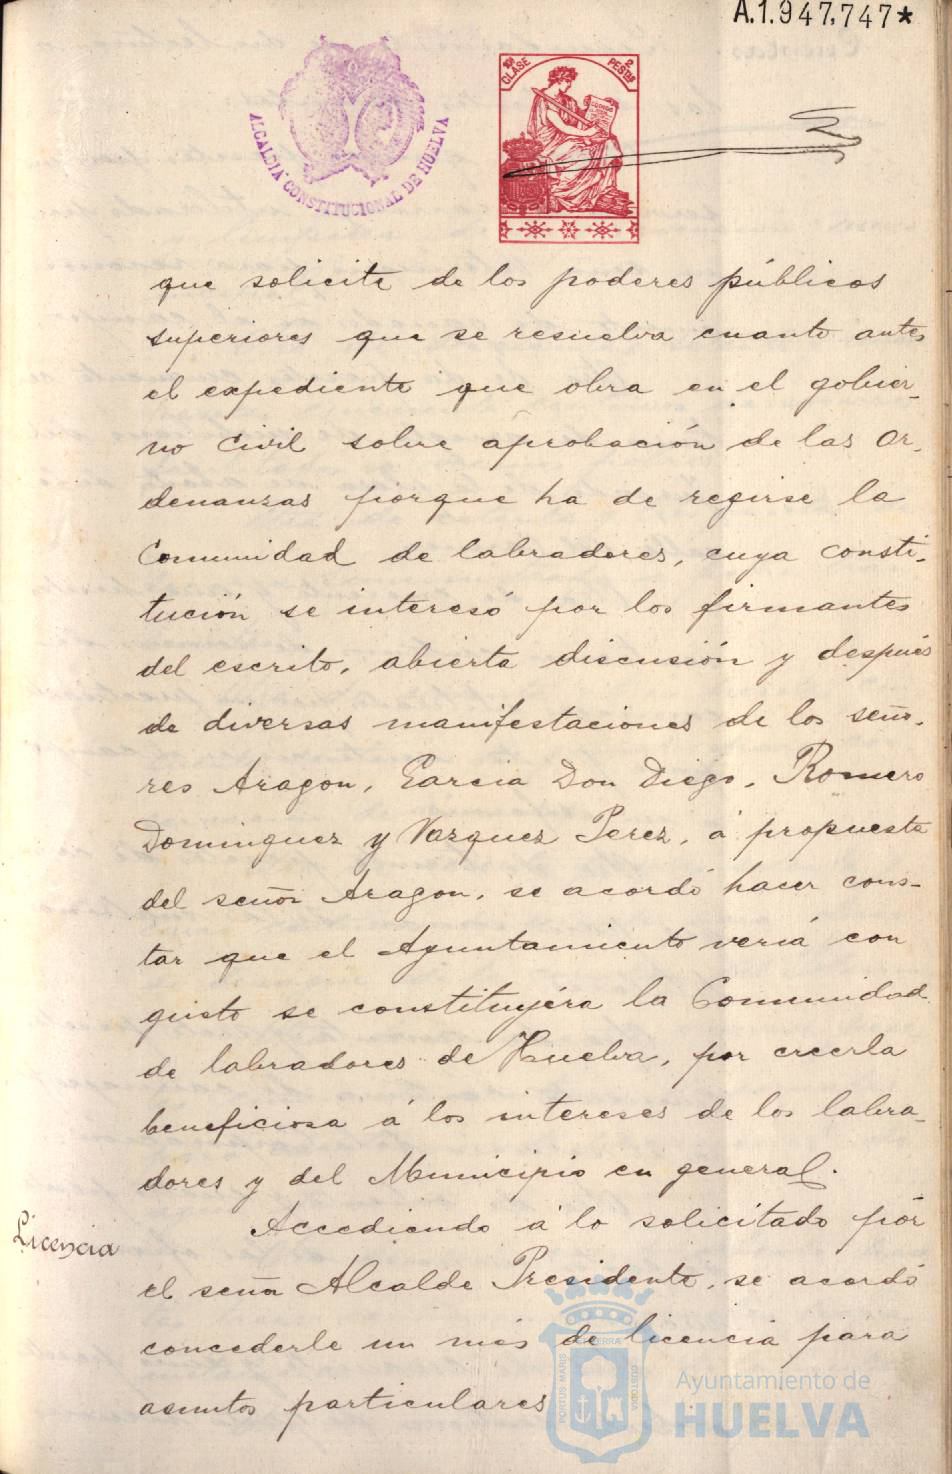 A.1.947.747*
ALCALDIA CONSTITUCIONAL DE HUELVA
10ª CLASE
2 PESTAS
que solicite de los poderes públicos
superiores que se resuelva cuanto antes
el expediente que obra en el gobier-
no Civil sobre aprobación de las Or-
denanzas porque ha de regirse la
Comunidad de labradores, cuya consti-
tución se interesó por los firmantes
del escrito, abierta discusión y después
de diversas manifestaciones de los seño-
res Aragon, Garcia Don Diego, Romero
Dominguez y Vazquez Perez, á propuesta
del señor Aragon, se acordó hacer cons-
tar que el Ayuntamiento veriá con
gusto se constituyéra la Comunidad
de labradores de Huelva, por creerla
beneficiosa á los intereses de los labra-
dores y del Municipio en general.
Licencia
Accediendo á lo solicitado por
el señor Alcalde Presidente, se acordó
concederle un més de licencia para
asuntos particulares
PORTUS MARIS
CUSTODIA
Ayuntamiento de
HUELVA